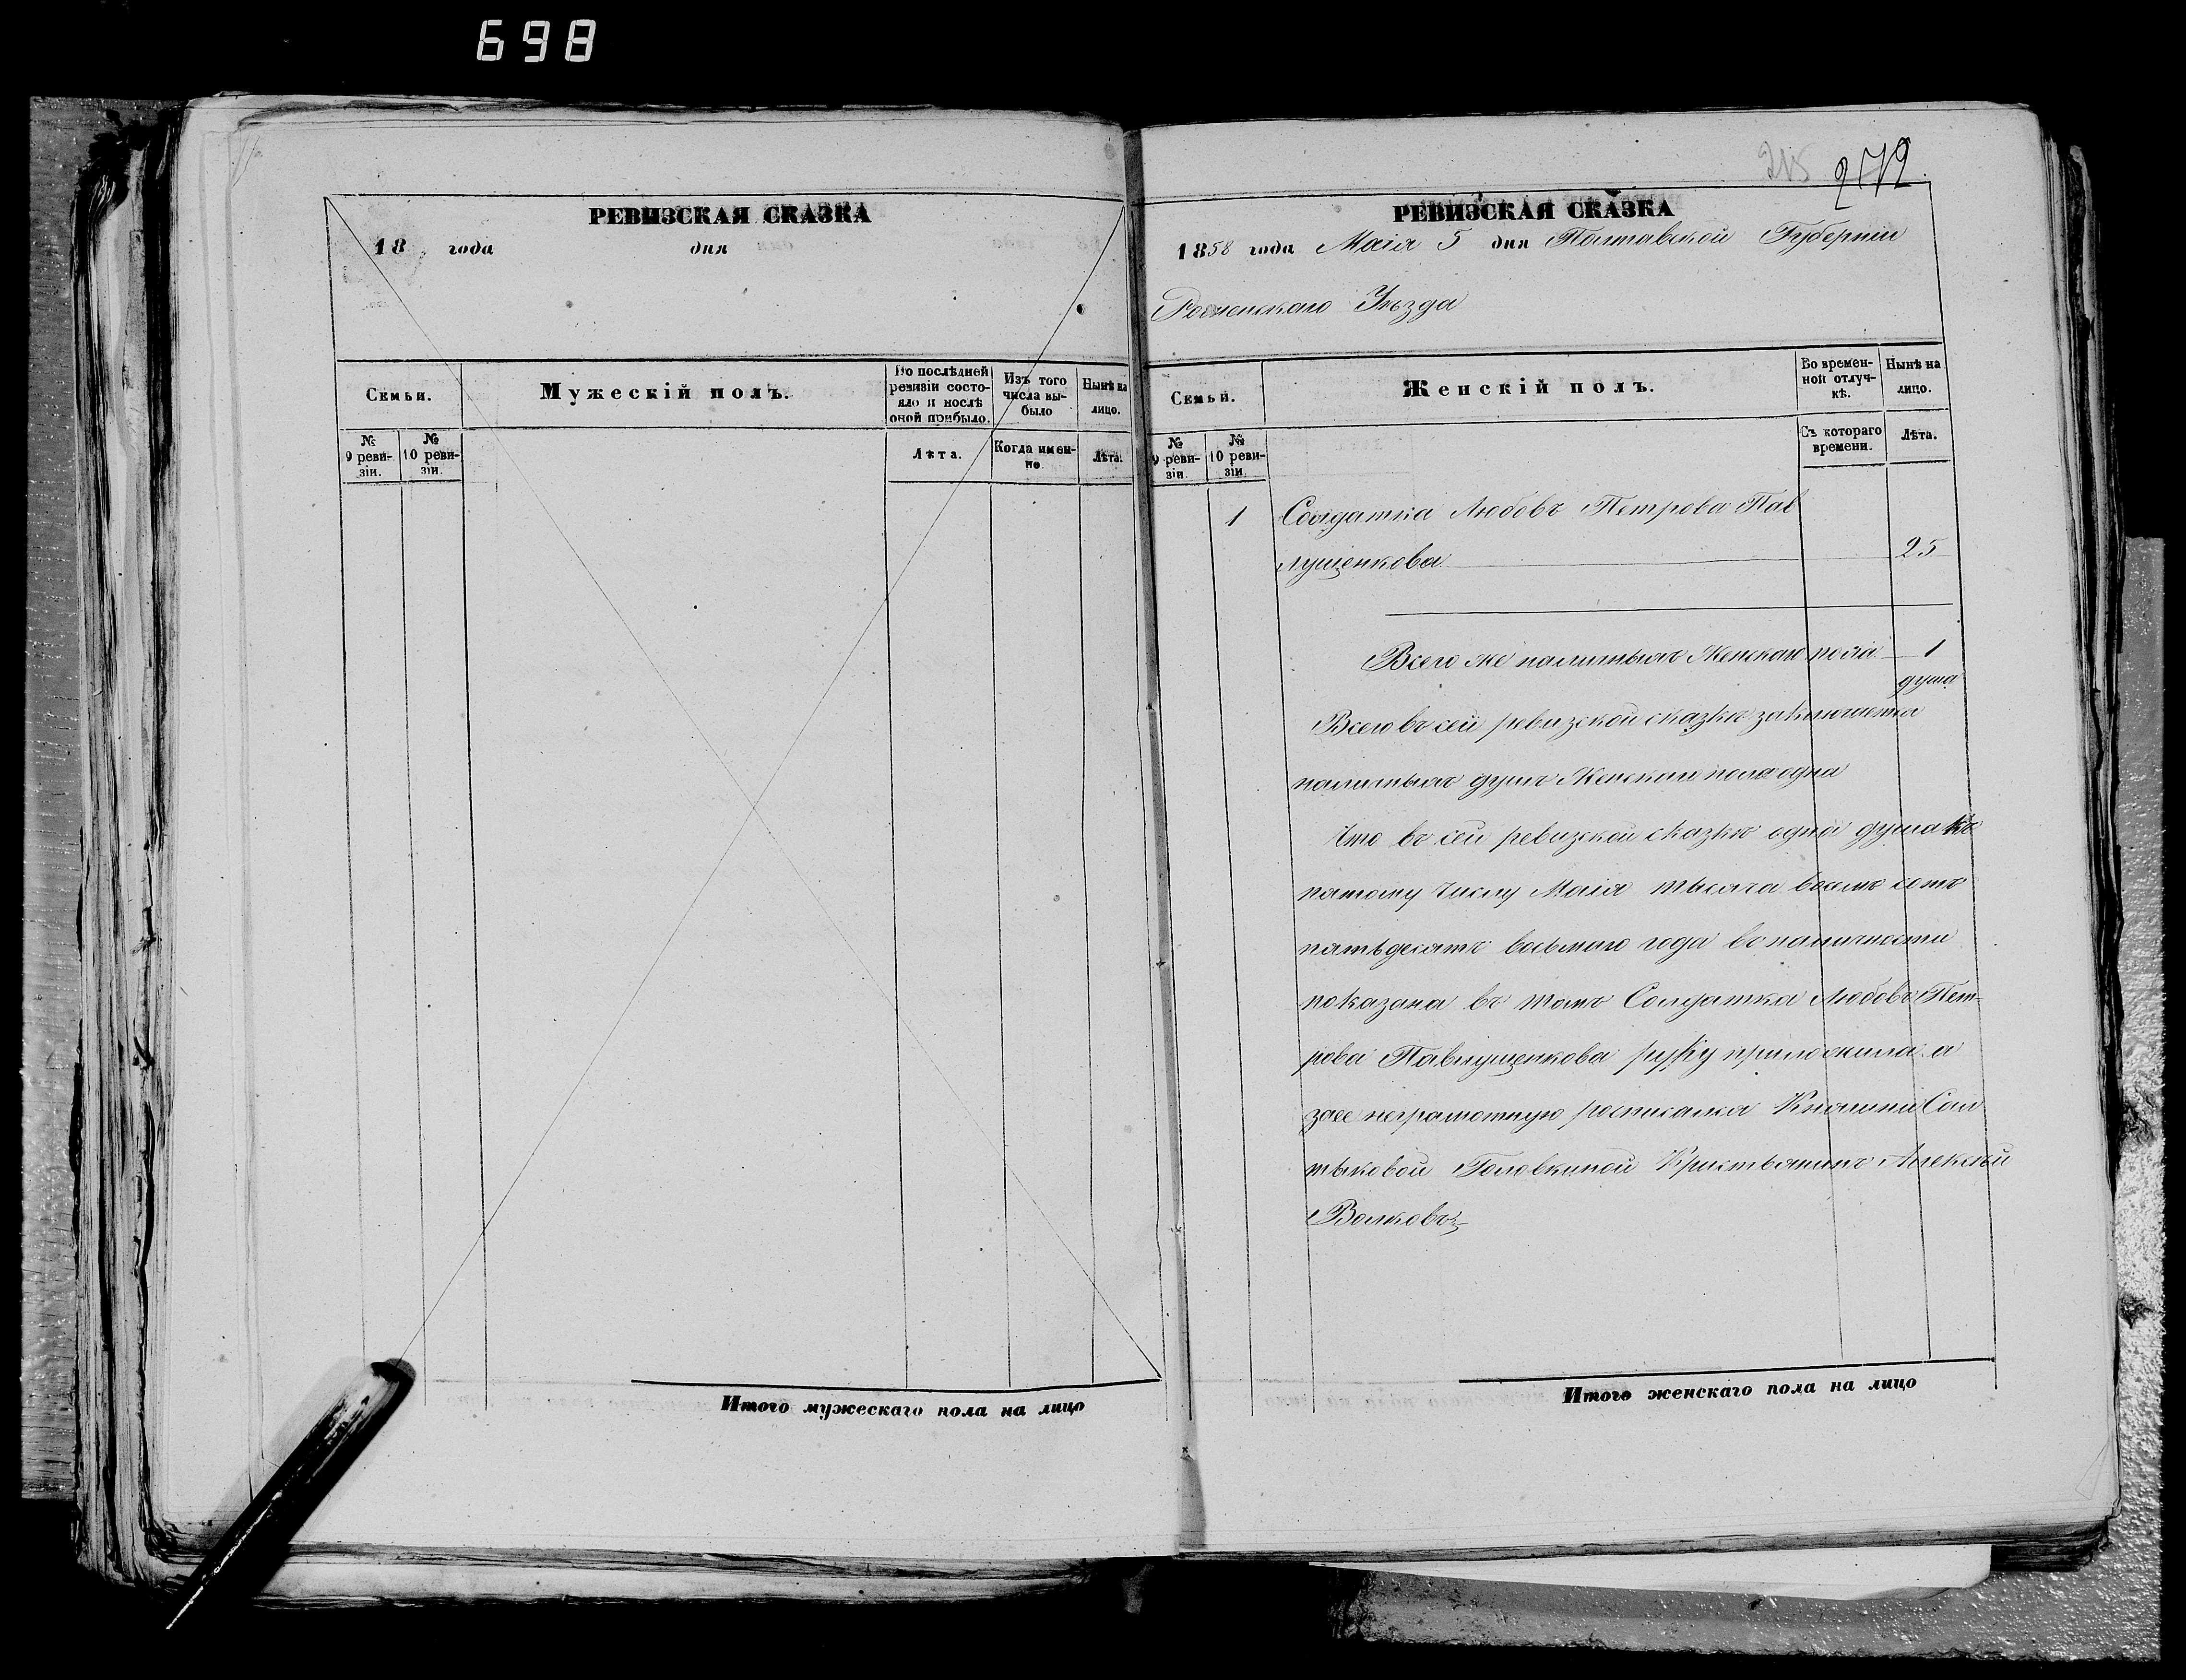 698
РЕВИЗСКАЯ СКАЗКА
18 года дня
Семьи.
Мужескій полъ.
По послѣдней ревизіи состояло и послѣ оной прибыло.
Изъ того числа выбыло
Нынѣ на лицо.
№ 9 ревизіи.
№ 10 ревизіи.
Лѣта.
Когда именно.
Лѣта.
Итого мужескаго пола на лицо
215 272
РЕВИЗСКАЯ СКАЗКА
1858 года Маія 5 дня Полтавской Губерніи
Роменскаго Уѣзда
Семьи.
Женскій полъ.
Во временной отлучкѣ.
Нынѣ на лицо.
№ 9 ревизіи.
№ 10 ревизіи.
Съ котораго времени.
Лѣта.
1 Солдатка Любовь Петрова Пав
лущенкова 25
Всего же наличныхъ Женскаго пола 1
душа
Всего въ сей ревизской сказкѣ заключается
наличныхъ душъ Женскаго пола одна
Что въ сей ревизской сказкѣ одна душа къ
пятому числу Маія тысяча восемь сотъ
пятьдесятъ восьмаго года въ наличности
показана въ томъ Солдатка Любовь Пет-
рова Павлущенкова руку приложила а
заее неграмотную росписался Княгини Сал
тыковой Головкиной Крестьянинъ Алексѣй
Волковъ
Итого женскаго пола на лицо